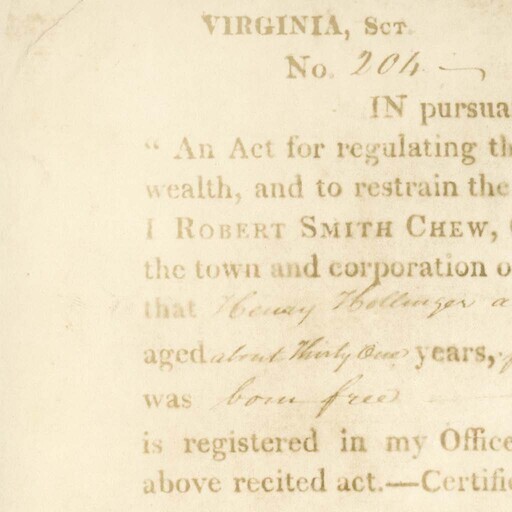 VIRGINIA, SCT.
No. 204
IN pursua
“ An Act for regulating th
wealth, and to restrain the
I ROBERT SMITH CHEW, C
the town and corporation o
that Henry Hollinger a
aged about Thirty One years,
was born free
is registered in my Office
above recited act.—Certific